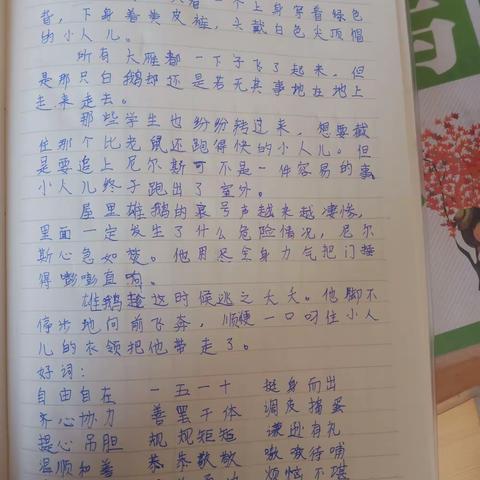 着一个上身穿着绿色
背，下身着黄皮裤，头戴白色尖顶帽
的小人儿。
所有大雁都一下子飞了起来，但
是那只白鹅却还是若无其事地在地上
走来走去。
那些学生也纷纷转过来，想要截
住那个比老鼠还跑得快的小人儿。但
是要追上尼尔斯可不是一件容易的事
小人儿终于跑出了室外。
屋里雄鹅的哀号声越来越凄惨，
里面一定发生了什么危险情况，尼尔
斯心急如焚。他用尽全身力气把门捶
得嘭嘭直响。
雄鹅趁这时候逃之夭夭。他脚不
停步地向前飞奔，顺便一口叼住小人
儿的衣领把他带走了。
好词：
自由自在 一五一十 挺身而出
齐心协力 善罢干体 调皮捣蛋
提心吊胆 规规矩矩 谦逊有礼
温顺和善 恭恭敬敬 嗷嗷待哺
烦恼不堪